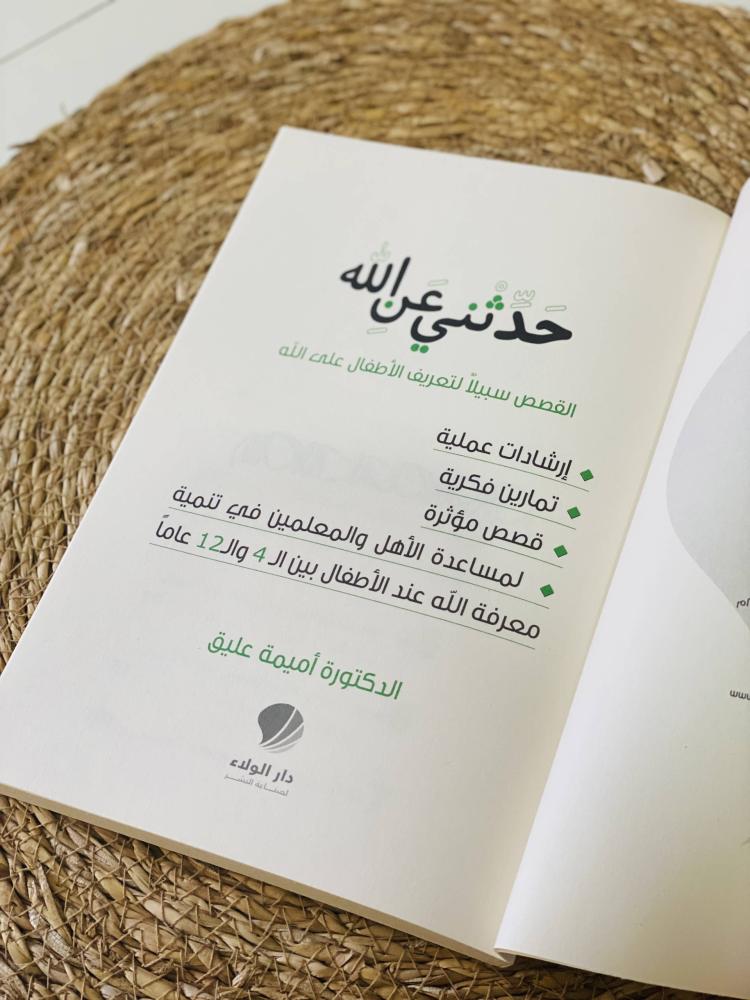 حَدِّثني عَنِ الله
القصص سبيلاً لتعريف الأطفال على الله
إرشادات عملية
تمارين فكرية
قصص مؤثرة
لمساعدة الأهل والمعلمين في تنمية
معرفة الله عند الأطفال بين الـ 4 والـ12 عاماً
الدكتورة أميمة عليق
دار الولاء
لصناعة النشر